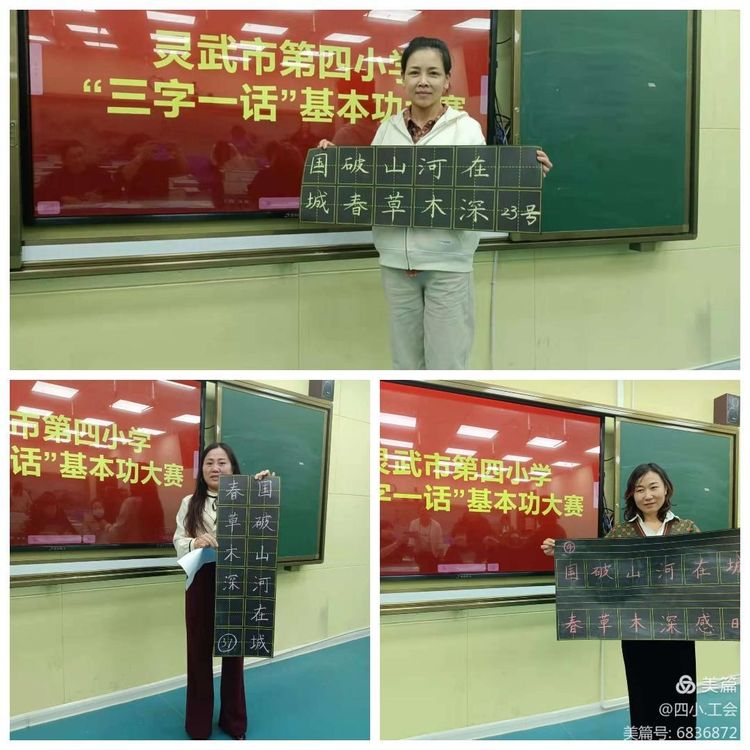 灵武市第四小学
“三字一话”基本功大赛
国破山河在
城春草木深 23号
市第四小学
话”基本功大赛
国破山河在城
春草木深 31
灵武市第四小学
字一话”基本功大赛
国破山河在城
春草木深感时
美篇
@四小.工会
美篇号: 6836872